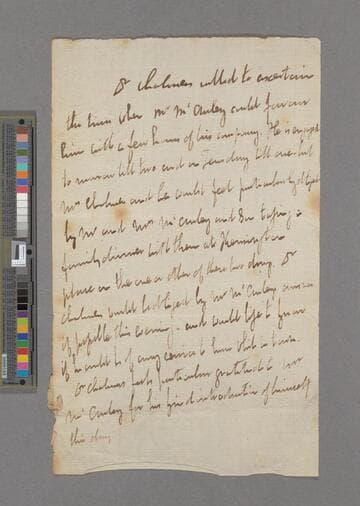 Dr Chalmers called to ascertain
the time when Mr McAuley could favour
him with a few hours of his company. He is engaged
to morrow till two and on Tuesday till one but
Mrs Chalmers and he would feel particularly obliged
by Mr and Mrs McAuley and taking a
family dinner with them at Kensington
place on the one or other of these two days. Dr
Chalmers would be obliged by Mr McAuley's answer
if possible this evening - and would like to know
if he could be of any service to him while in town.
Dr Chalmers feels particular gratitude to Mr
McAuley for his kind introduction of himself
this day